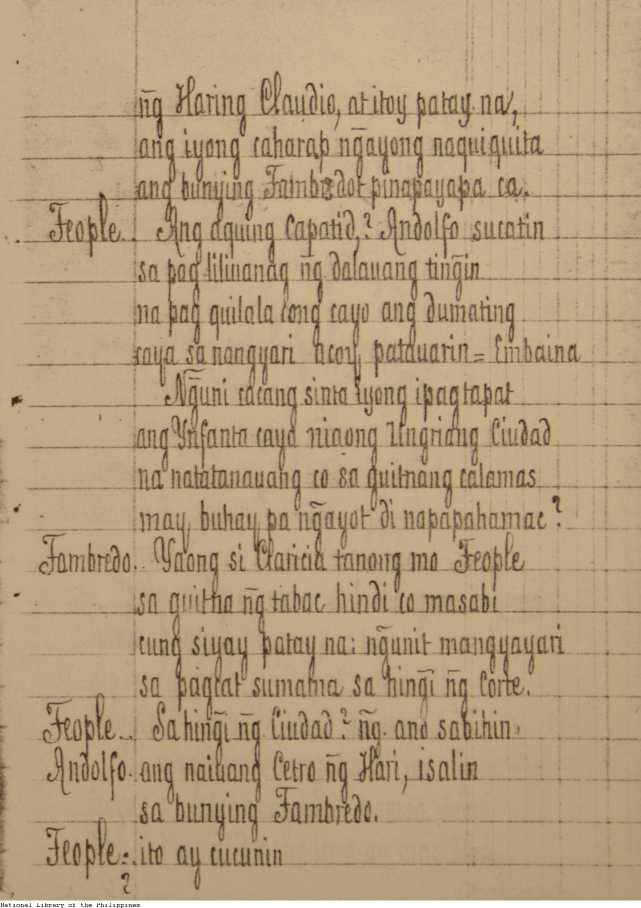 n͠g Haring Claudio, at itoy patay na,
ang iyong caharap n͠gayong naquiquita
ang bunying Fambredot pinapayapa ca.
Feople.. Ang aquing Capatid,? Andolfo sucatin
sa pag liliuanag n͠g dalauang ting̃in
na pag quilala cong cayo ang dumating
caya sa nangyari acoy, patauarin = Embaina
N͠guni cacang sinta iyong ipagtapat
ang Ynfanta caya niaong Ungriang Ciudad
na natatanauang co sa guitnang calamas
may, buhay pa n͠gayot di napapahamac?
Fambredo.. Yaong si Claricia tanong mo Feople
sa guitna n͠g tabac hindi co masabi
cung siyay patay na: n͠gunit mangyayari
sa pagcat sumama sa hing̃i n͠g Corte.
Feople.. Sa hing̃i n͠g Ciudad? n͠g. ano sabihin.
Andolfo. ang naiuang Cetro n͠g Hari, isalin
sa bunying Fambredo.
Feople.. ito ay cucunin
?
National Library of the Philippines